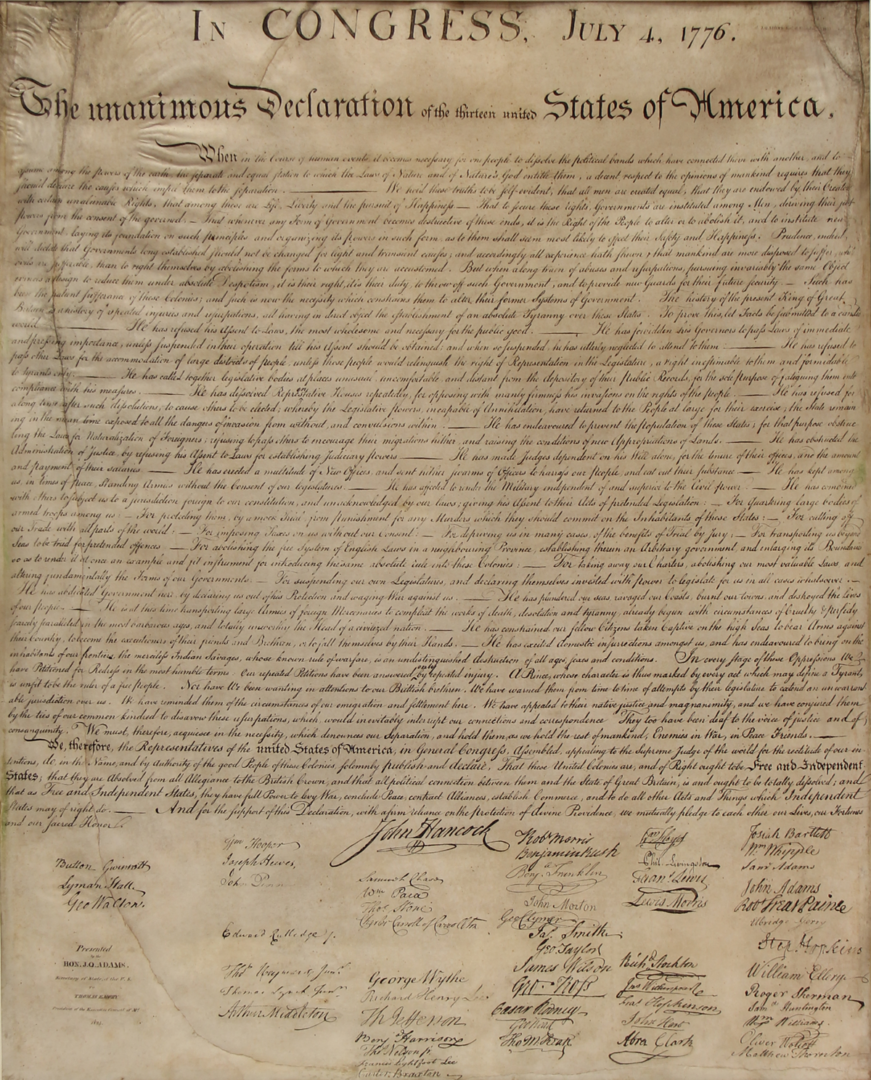 IN CONGRESS, JULY 4, 1776.
The unanimous Declaration of the thirteen united States of America,
When in the Course of human events, it becomes necessary for one people to dissolve the political bands which have connected them with another, and to
assume among the powers of the earth, the separate and equal station to which the Laws of Nature and of Nature's God entitle them, a decent respect to the opinions of mankind requires that they
should declare the causes which impel them to the separation. — We hold these truths to be self-evident, that all men are created equal, that they are endowed by their Creator
with certain unalienable Rights, that among these are Life, Liberty and the pursuit of Happiness. — That to secure these rights, Governments are instituted among Men, deriving their just
powers from the consent of the governed, — That whenever any Form of Government becomes destructive of these ends, it is the Right of the People to alter or to abolish it, and to institute new
Government, laying its foundation on such principles and organizing its powers in such form, as to them shall seem most likely to effect their Safety and Happiness. Prudence, indeed,
will dictate that Governments long established should not be changed for light and transient causes; and accordingly all experience hath shewn, that mankind are more disposed to suffer, while
evils are sufferable, than to right themselves by abolishing the forms to which they are accustomed. But when a long train of abuses and usurpations, pursuing invariably the same Object
evinces a design to reduce them under absolute Despotism, it is their right, it is their duty, to throw off such Government, and to provide new Guards for their future security. — Such has
been the patient sufferance of these Colonies; and such is now the necessity which constrains them to alter their former Systems of Government. The history of the present King of Great
Britain is a history of repeated injuries and usurpations, all having in direct object the establishment of an absolute Tyranny over these States. To prove this, let Facts be submitted to a candid
world. — He has refused his Assent to Laws, the most wholesome and necessary for the public good. — He has forbidden his Governors to pass Laws of immediate
and pressing importance, unless suspended in their operation till his Assent should be obtained; and when so suspended, he has utterly neglected to attend to them. — He has refused to
pass other Laws for the accommodation of large districts of people, unless those people would relinquish the right of Representation in the Legislature, a right inestimable to them and formidable
to tyrants only. — He has called together legislative bodies at places unusual, uncomfortable, and distant from the depository of their Public Records, for the sole purpose of fatiguing them into
compliance with his measures. — He has dissolved Representative Houses repeatedly, for opposing with manly firmness his invasions on the rights of the people. — He has refused for
a long time, after such dissolutions, to cause others to be elected; whereby the Legislative powers, incapable of Annihilation, have returned to the People at large for their exercise; the State remain-
ing in the mean time exposed to all the dangers of invasion from without, and convulsions within. — He has endeavoured to prevent the population of these States; for that purpose obstruc-
ting the Laws for Naturalization of Foreigners; refusing to pass others to encourage their migrations hither, and raising the conditions of new Appropriations of Lands. — He has obstructed the
Administration of Justice, by refusing his Assent to Laws for establishing Judiciary powers. — He has made Judges dependent on his Will alone, for the tenure of their offices, and the amount
and payment of their salaries. — He has erected a multitude of New Offices, and sent hither swarms of Officers to harrass our people, and eat out their substance. — He has kept among
us, in times of peace, Standing Armies without the Consent of our legislatures. — He has affected to render the Military independent of and superior to the Civil power. — He has combined
with others to subject us to a jurisdiction foreign to our constitution, and unacknowledged by our laws; giving his Assent to their Acts of pretended Legislation: — For quartering large bodies of
armed troops among us: — For protecting them, by a mock Trial, from punishment for any Murders which they should commit on the Inhabitants of these States: — For cutting off
our Trade with all parts of the world: — For imposing Taxes on us without our Consent: — For depriving us in many cases, of the benefits of Trial by Jury: — For transporting us beyond
Seas to be tried for pretended offences — For abolishing the free System of English Laws in a neighbouring Province, establishing therein an Arbitrary government, and enlarging its Boundaries
so as to render it at once an example and fit instrument for introducing the same absolute rule into these Colonies: — For taking away our Charters, abolishing our most valuable Laws, and
altering fundamentally the Forms of our Governments: — For suspending our own Legislatures, and declaring themselves invested with power to legislate for us in all cases whatsoever. —
He has abdicated Government here, by declaring us out of his Protection and waging War against us. — He has plundered our seas, ravaged our Coasts, burnt our towns, and destroyed the lives
of our people. — He is at this time transporting large Armies of foreign Mercenaries to compleat the works of death, desolation and tyranny, already begun with circumstances of Cruelty & perfidy
scarcely paralleled in the most barbarous ages, and totally unworthy the Head of a civilized nation. — He has constrained our fellow Citizens taken Captive on the high Seas to bear Arms against
their Country, to become the executioners of their friends and Brethren, or to fall themselves by their Hands. — He has excited domestic insurrections amongst us, and has endeavoured to bring on the
inhabitants of our frontiers, the merciless Indian Savages, whose known rule of warfare, is an undistinguished destruction of all ages, sexes and conditions. In every stage of these Oppressions We
have Petitioned for Redress in the most humble terms: Our repeated Petitions have been answered only by repeated injury. A Prince, whose character is thus marked by every act which may define a Tyrant,
is unfit to be the ruler of a free people. Nor have We been wanting in attentions to our Brittish brethren. We have warned them from time to time of attempts by their legislature to extend an unwarrant-
able jurisdiction over us. We have reminded them of the circumstances of our emigration and settlement here. We have appealed to their native justice and magnanimity, and we have conjured them
by the ties of our common kindred to disavow these usurpations, which, would inevitably interrupt our connections and correspondence. They too have been deaf to the voice of justice and of
consanguinity. We must, therefore, acquiesce in the necessity, which denounces our Separation, and hold them, as we hold the rest of mankind, Enemies in War, in Peace Friends. —
We, therefore, the Representatives of the united States of America, in General Congress, Assembled, appealing to the Supreme Judge of the world for the rectitude of our in-
tentions, do, in the Name, and by Authority of the good People of these Colonies, solemnly publish and declare, That these United Colonies are, and of Right ought to be Free and Independent
States; that they are Absolved from all Allegiance to the British Crown, and that all political connection between them and the State of Great Britain, is and ought to be totally dissolved; and
that as Free and Independent States, they have full Power to levy War, conclude Peace, contract Alliances, establish Commerce, and to do all other Acts and Things which Independent
States may of right do. — And for the support of this Declaration, with a firm reliance on the protection of divine Providence, we mutually pledge to each other our Lives, our Fortunes
and our sacred Honor.
Button Gwinnett
Lyman Hall
Geo Walton.
Wm Hooper
Joseph Hewes,
John Penn
Edward Rutledge /.
Thos Heyward Junr.
Thomas Lynch Junr.
Arthur Middleton
John Hancock
Samuel Chase
Wm Paca
Thos Stone
Charles Carroll of Carrollton
George Wythe
Richard Henry Lee
Th Jefferson
Benj Harrison
Thos Nelson jr.
Francis Lightfoot Lee
Carter Braxton
Robt Morris
Benjamin Rush
Benj. Franklin
John Morton
Geo Clymer
Jas. Smith
Geo. Taylor
James Wilson
Geo. Ross
Caesar Rodney
Geo Read
Tho M:Kean
Wm Floyd
Phil. Livingston
Frans. Lewis
Lewis Morris
Richd. Stockton
Jno Witherspoon
Fras. Hopkinson
John Hart
Abra Clark
Josiah Bartlett
Wm Whipple
Saml Adams
John Adams
Robt Treat Paine
Elbridge Gerry
Step. Hopkins
William Ellery
Roger Sherman
Saml Huntington
Wm Williams
Oliver Wolcott
Matthew Thornton
Presented
HON. J. Q. ADAMS.